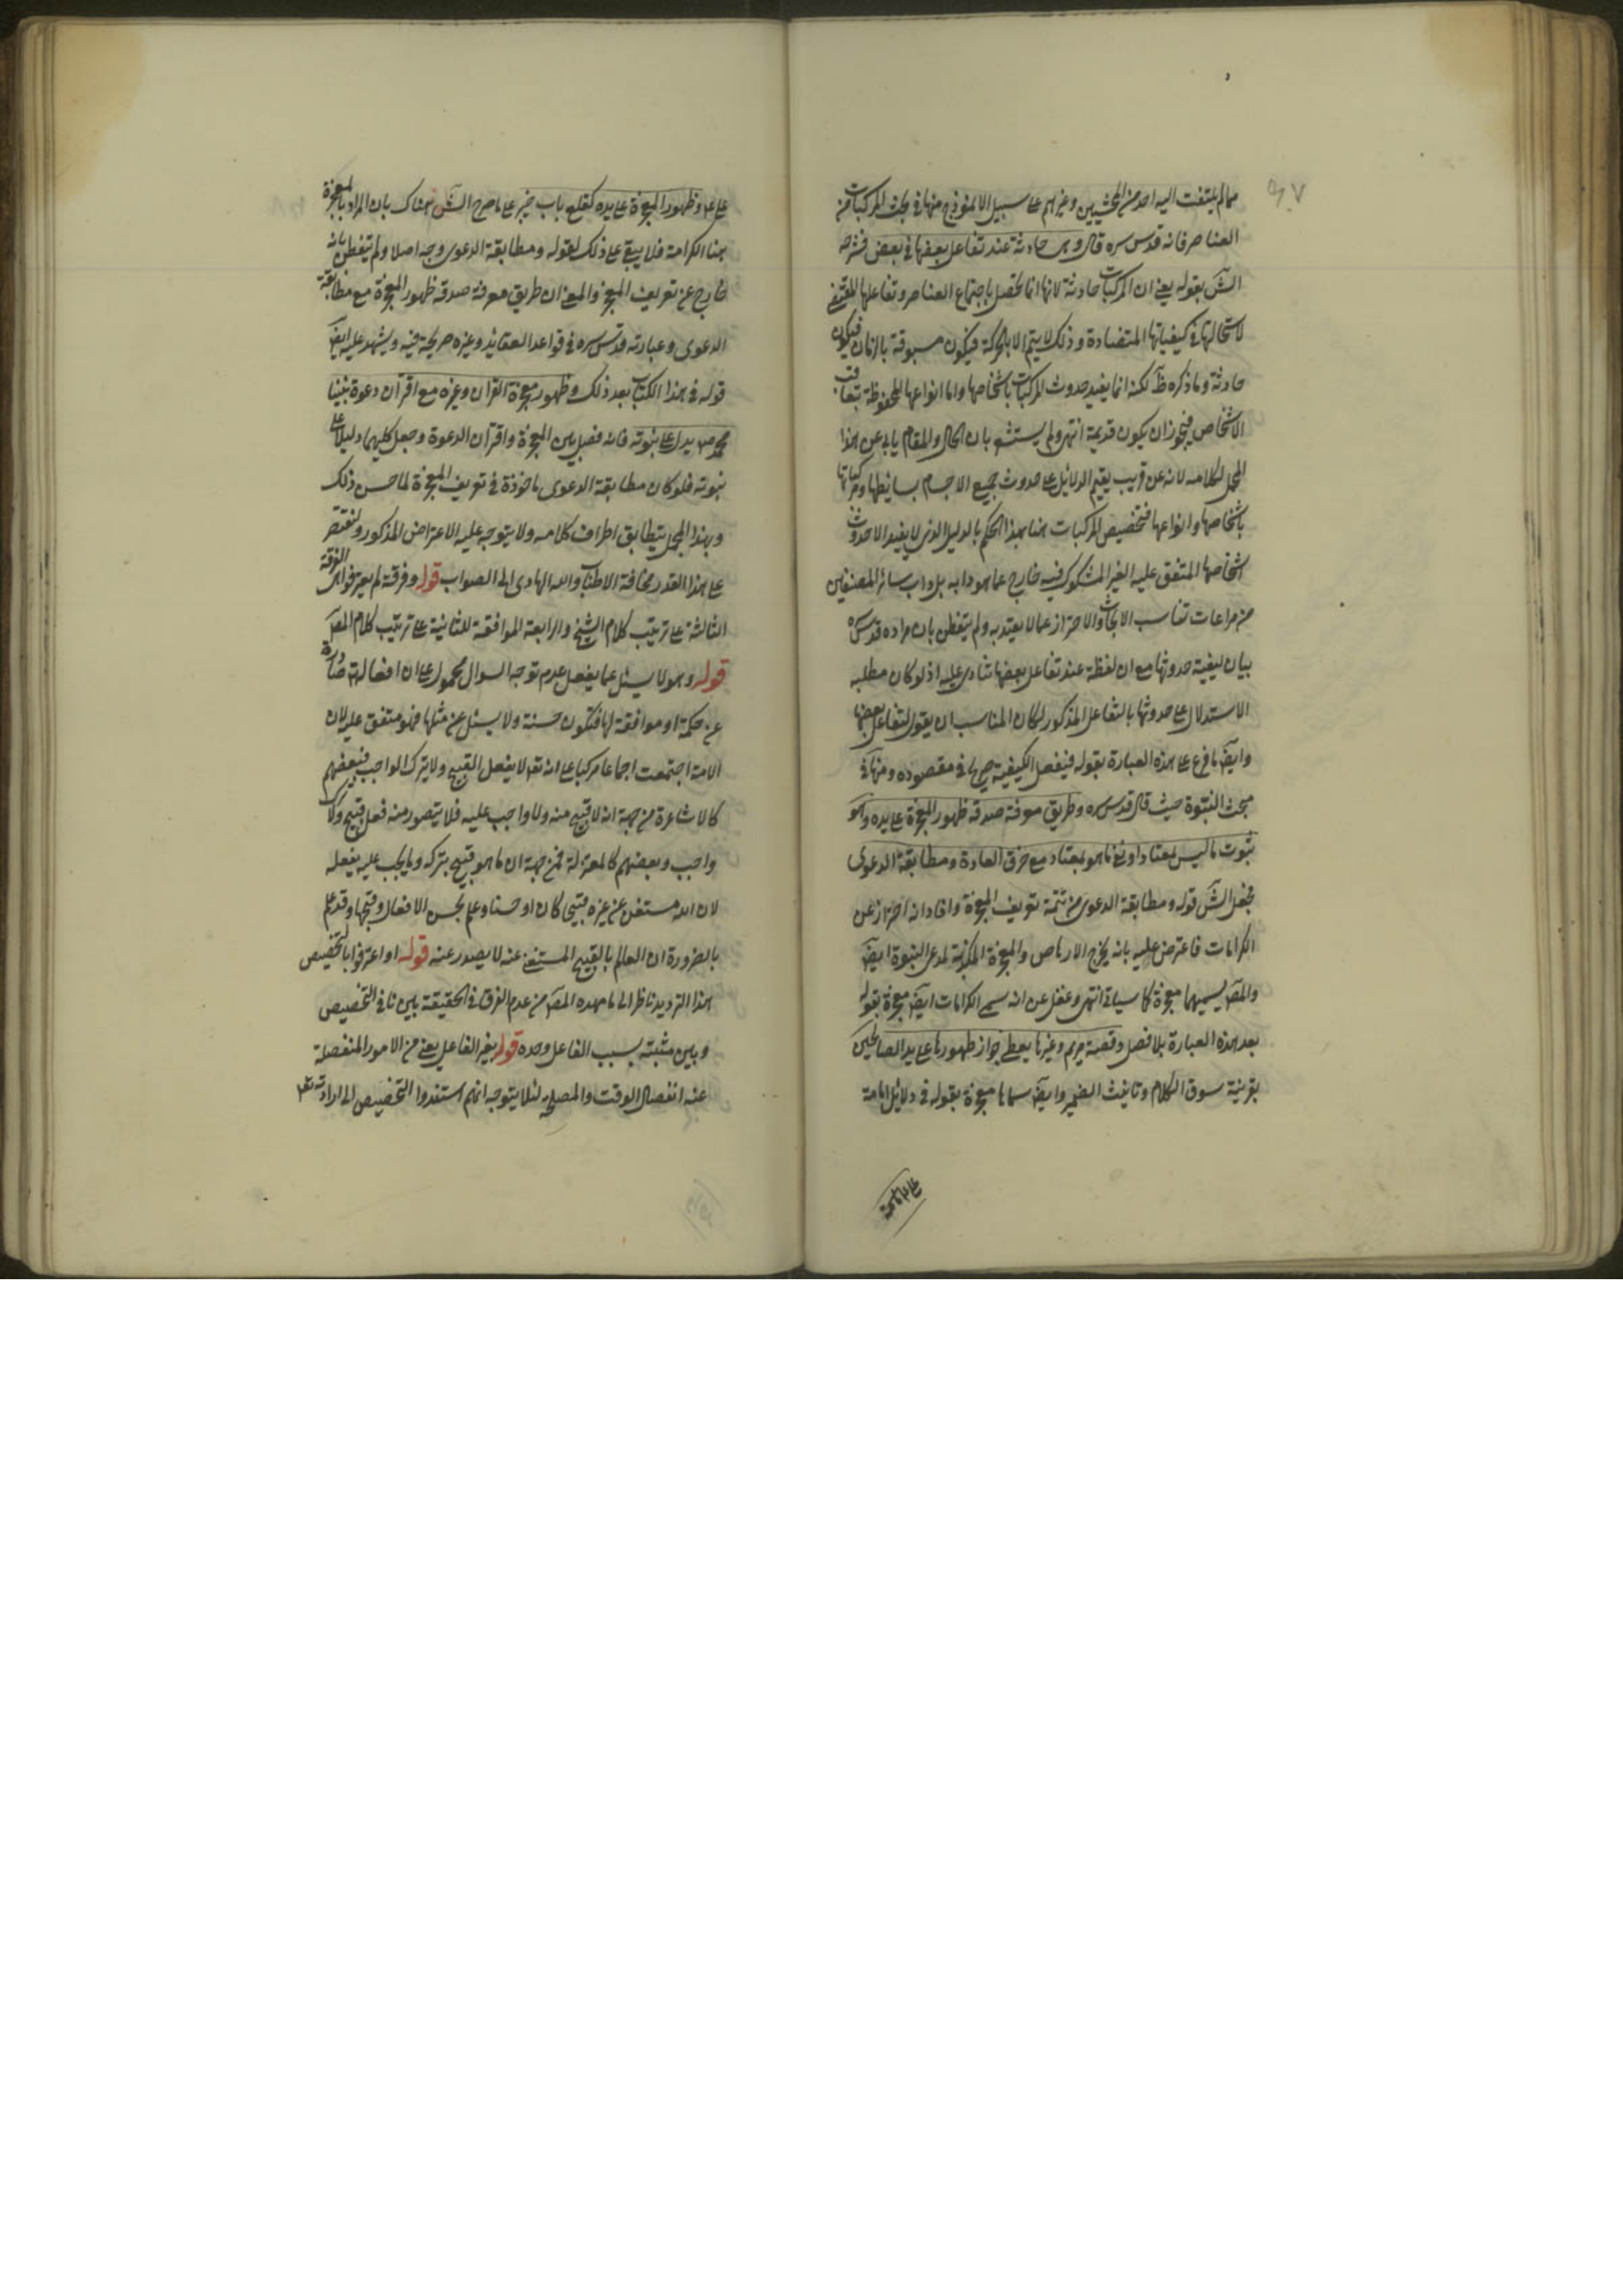 ٩٧
مما لم يلتفت اليه احد من المحشيين وغيرهم على سبيل الانموذج منها في بحث المركبات من
العناصر فانه قدس سره قال وهى حادثة عند تفاعل بعضها في بعض فشرحه
الشَ بقوله يعني ان المركبات حادثة لانها انما تحصل باجتماع العناصر وتفاعلها المقتضي
لاستحالتها في كيفياتها المتضادة وذلك لا يتم الا بالحركة فيكون مسبوقة بالزمان فيكون
حادثة وما ذكره ظَ لكنه انما يفيد حدوث المركبات باشخاصها واما انواعها المحفوظة بتعاقب
الاشخاص فيجوز ان يكون قديمة انتهى ولم يستشعر بان الحال والمقام يابى عن هذا
المحمل لكلامه لانه عن قريب يقيم الدلائل على حدوث جميع الاجسام بسائطها ومركباتها
باشخاصها وانواعها فتخصيص المركبات هنا بهذا الحكم بالدليل الذى لا يفيد الا حدوث
اشخاصها المتفق عليه الغير المشكوك فيه خارج عما هو دابه بل داب سائر المصنفين
من مراعات تناسب الابحاث والاحتراز عما لا يعتد به ولم يتفطن بان مراده قدس سره
بيان كيفية حدوثها مع ان لفظة عند تفاعل بعضها تنادى عليه اذ لو كان مطلبه
الاستدلال على حدوثها بالتفاعل المذكور لكان المناسب ان يقول لتفاعل بعضها
وايضَ ما فرع على هذه العبارة بقوله فينفعل الكيفية صريح في مقصوده ومنها في
مبحث النبوة حيث قال قدس سره وطريق معرفة صدقه ظهور المعجزة على يده وهو
ثبوت ما ليس بمعتاد او نفي ما هو معتاد مع خرق العادة ومطابقة الدعوى
فجعل الشَ قوله ومطابقة الدعوى من تتمة تعريف المعجزة وافاد انه احتراز عن
الكرامات فاعترض عليه بانه يخرج الارهاص والمعجزة المكذبة لمدعى النبوة ايضَ
والمصَ يسميهما معجزة كما سياتي انتهى وغفل عن انه سمى الكرامات ايضَ معجزة بقوله
بعد هذه العبارة بلا فصل وقصة مريم وغيرها يعطي جواز ظهورها على يد الصالحين
بقرينة سوق الكلام وتانيث الضمير وايضَ سماها معجزة بقوله في دلائل امامة
على ع وظهور المعجزة على يده كقلع باب خيبر على ما صرح الشَ هناك بان المراد بالمعجزة
هنا الكرامة فلا يبقى على ذلك لقوله ومطابقة الدعوى وجه اصلا ولم يتفطن بانه
خارج عن تعريف المعجز والمعنى ان طريق معرفة صدقه ظهور المعجزة مع مطابقة
الدعوى وعبارته قدس سره في قواعد العقائد وغيره صريحة فيه ويشهد عليه ايضَ
قوله في هذا الكتاب بعد ذلك وظهور معجزة القرآن وغيره مع اقتران دعوة نبينا
محمد ص يدل على نبوته فانه فصل بين المعجزة واقتران الدعوة وجعل كليهما دليلا على
نبوته فلو كان مطابقة الدعوى ماخوذة في تعريف المعجزة لما حسن ذلك
وبهذا المحمل يتطابق اطراف كلامه ولا يتوجه عليه الاعتراض المذكور ولنقتصر
على هذا القدر مخافة الاطناب والله الهادى الى الصواب قوله وفرقة لم يعترفوا اى الفرقة
الثالثة على ترتيب كلام الشيخ والرابعة الموافقة للثانية على ترتيب كلام المصَ
قوله وهو لا يسئل عما يفعل عدم توجه السوال محمول على ان افعاله تع صادرة
عن حكمة او موافقة لها فتكون حسنة ولا يسئل عن مثلها فهو متفق عليه لان
الامة اجتمعت اجماعا مركبا على انه تعَ لا يفعل القبيح ولا يترك الواجب فبعضهم
كالاشاعرة من جهة انه لا قبيح منه ولا واجب عليه فلا يتصور منه فعل قبيح ولا ترك
واجب وبعضهم كالمعتزلة فمن جهة ان ما هو قبيح يتركه وما يجب عليه يفعله
لان الله مستغن عن غيره قبيحا كان او حسنا وعلم بحسن الافعال وقبحها وقد علم
بالضرورة ان العالم بالقبيح المستغنى عنه لا يصدر عنه قوله او اعترفوا بالتخصيص
هذا الترديد ناظر الى ما مهده المصَ من عدم الفرق في الحقيقة بين نافي التخصيص
وبين مثبته بسبب الفاعل وحده قوله بغير الفاعل يعني من الامور المنفصلة
عنه انفصال الوقت والمصلحة لئلا يتوجه انهم استندوا التخصيص الى ارادته تعَ